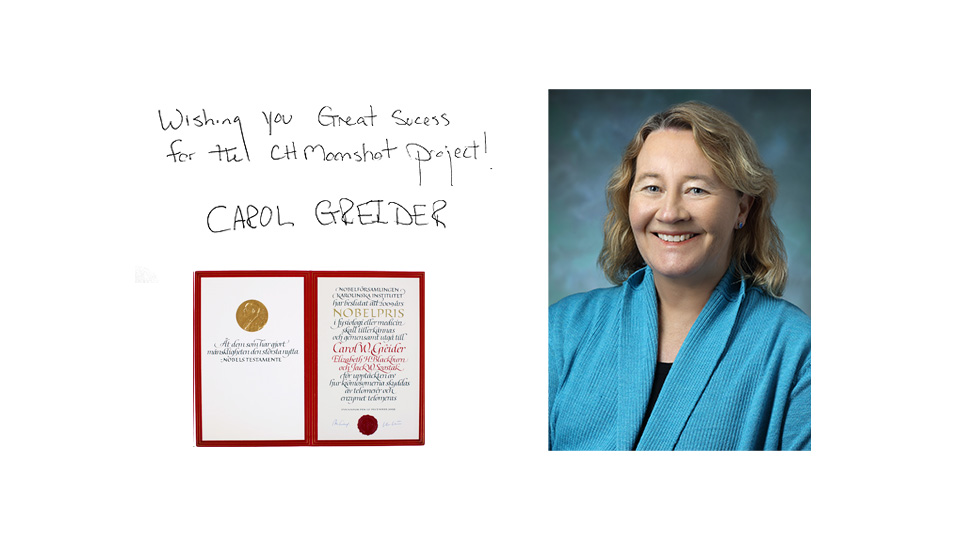 Wishing you Great Sucess
for the CH Moonshot project!
CAROL GREIDER
Åt dem som har gjort
mänskligheten den största nytta
NOBELS TESTAMENTE
NOBELFÖRSAMLINGEN
KAROLINSKA INSTITUTET
har beslutat att 2009 års
NOBELPRIS
i fysiologi eller medicin
skall tillerkännas
och gemensamt utgå till
Carol W. Greider
Elizabeth H. Blackburn
och Jack W. Szostak
för upptäckten av
hur kromosomerna skyddas
av telomerer och
enzymet telomeras